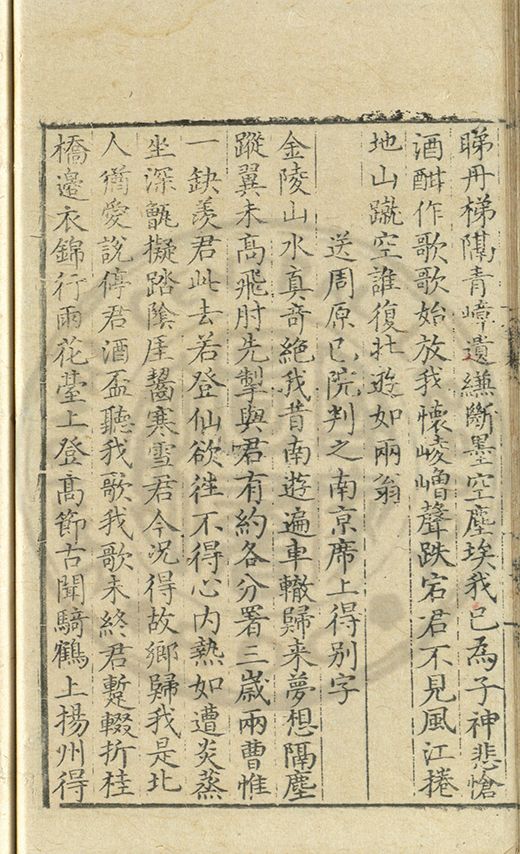 睇丹梯隔青嶂遺縑斷墨空塵埃我已為子神悲愴
酒酣作歌歌始放我懷崚嶒聲跌宕君不見風江捲
地山蹴空誰復壯遊如兩翁
送周原已院判之南京席上得別字
金陵山水真奇絕我昔南遊遍車轍歸来夢想隔塵
蹤翼未高飛肘先掣與君有約各分署三歲兩曹惟
一缺羨君此去若登仙欲徃不得心内熱如遭炎蒸
坐深甑擬踏陰厓齧寒雪君今况得故鄉歸我是北
人猶愛說停君酒盃聽我歌我歌未終君蹔輟折桂
橋邊衣錦行雨花臺上登高節古聞騎鶴上揚州得